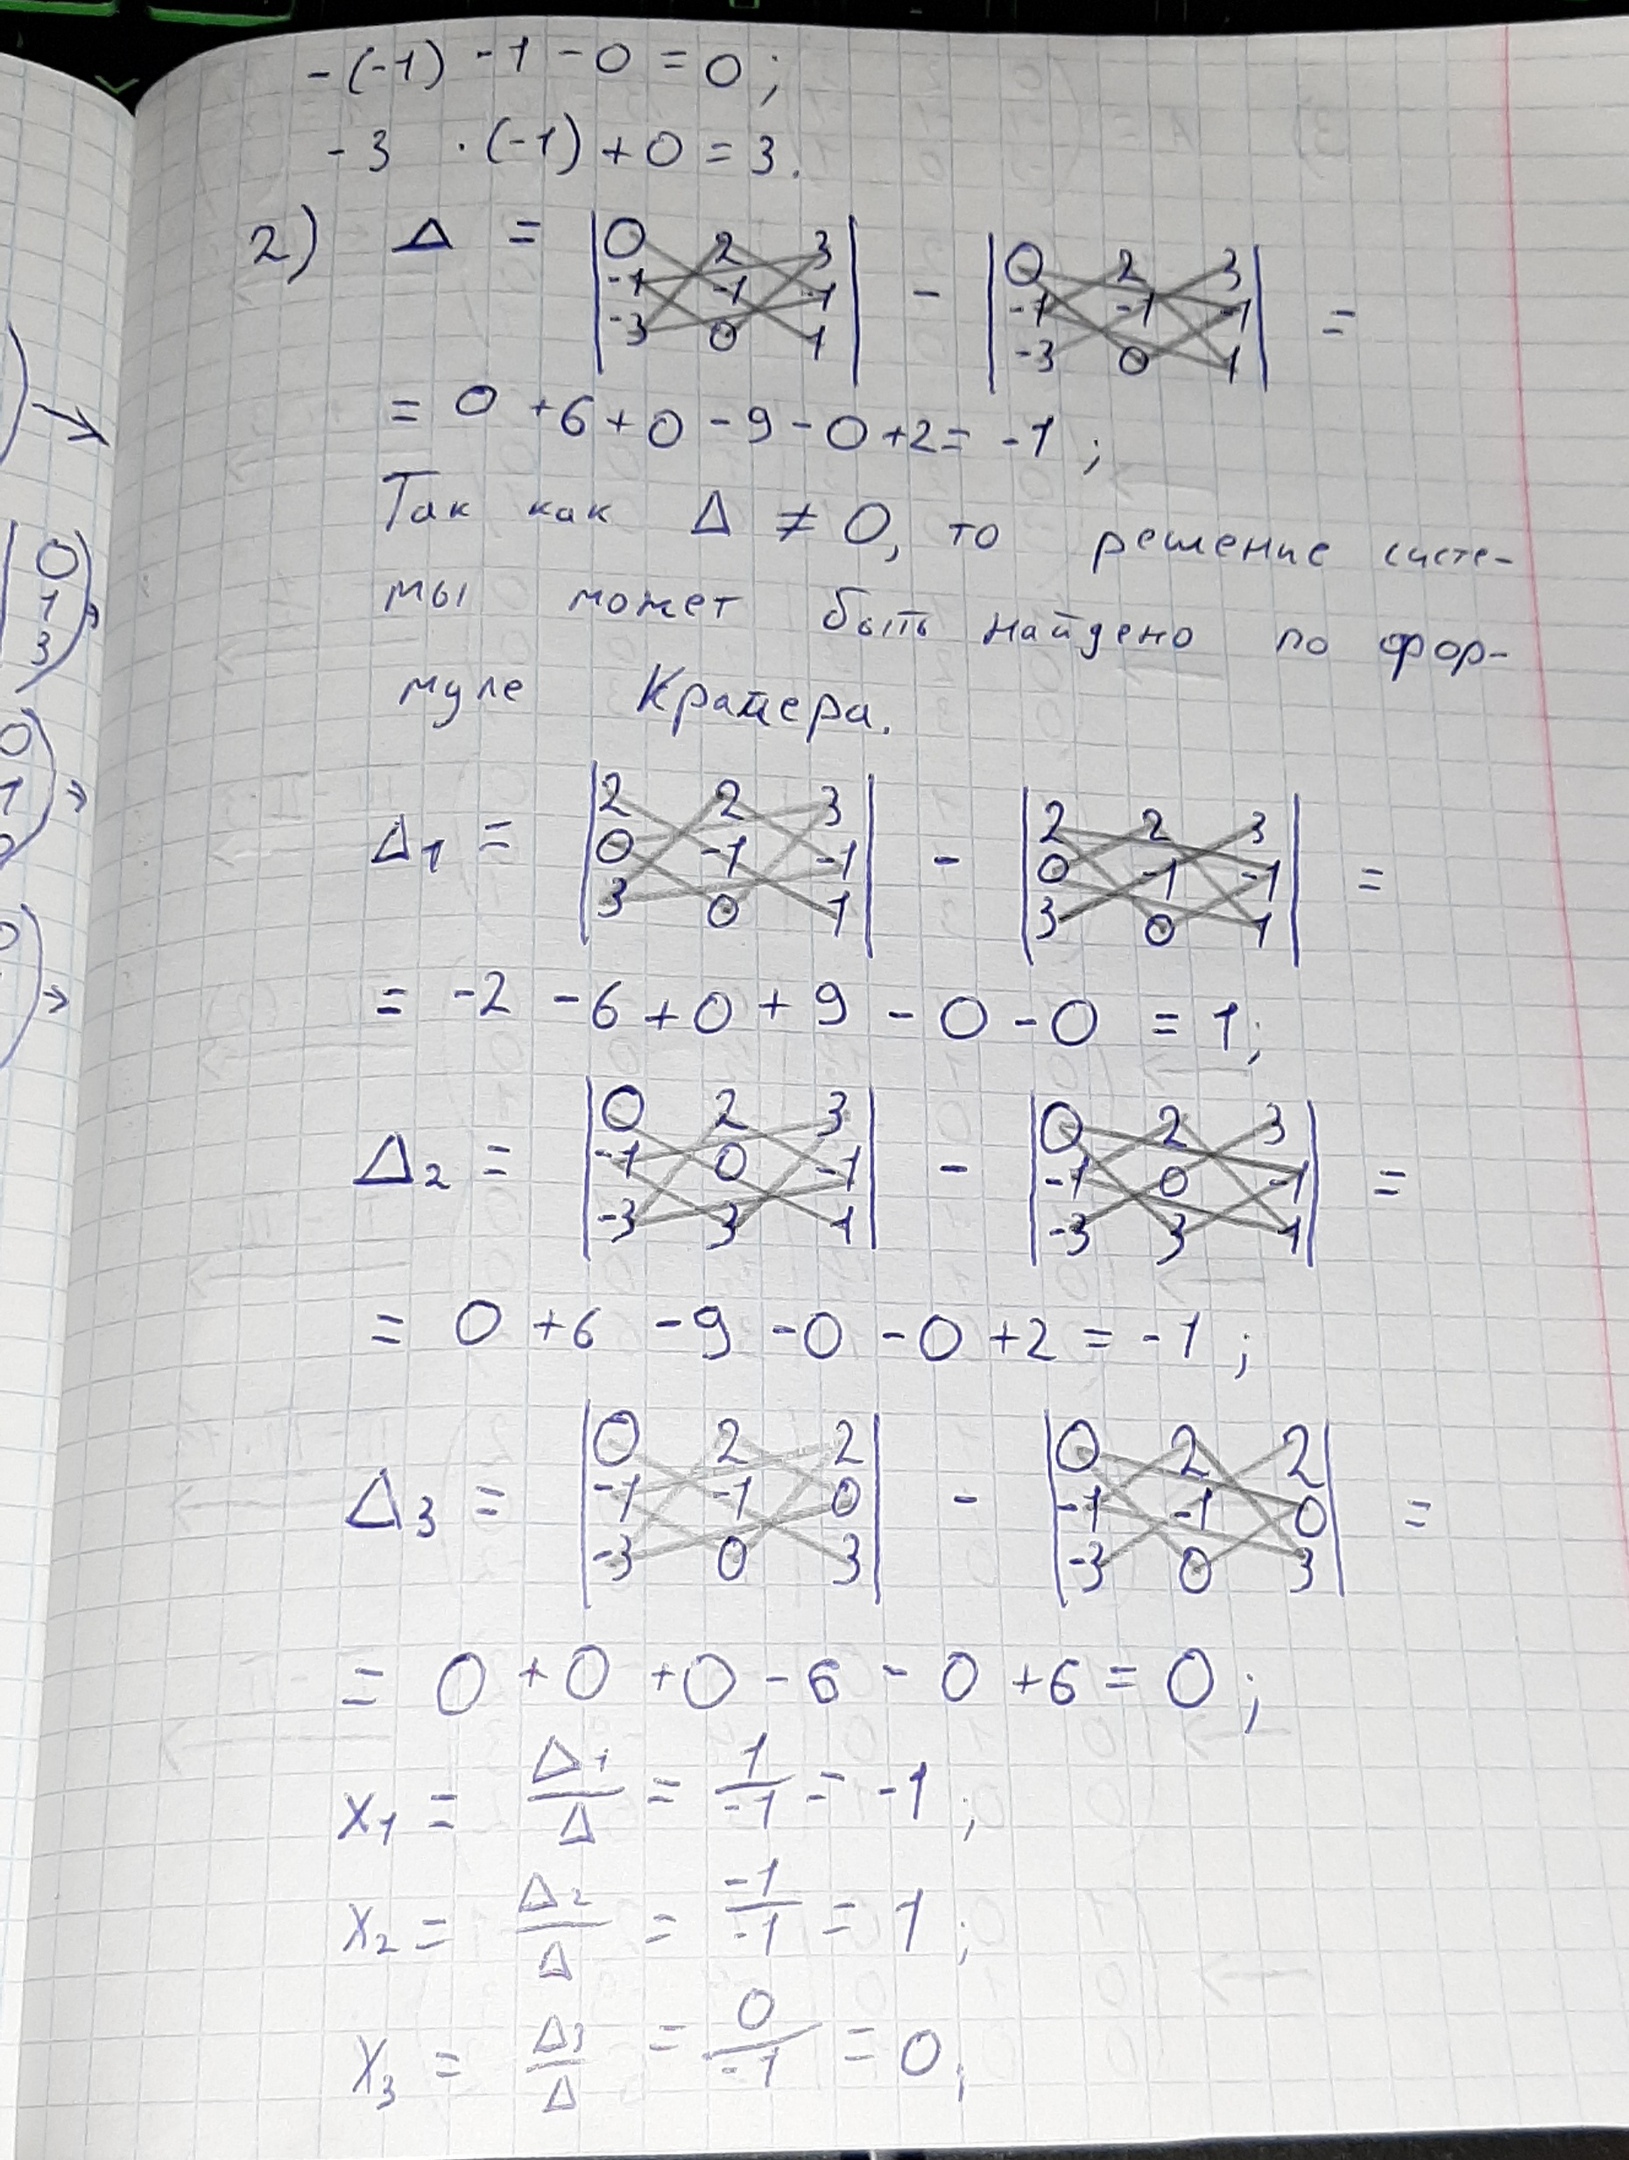 -(-1) -1 - 0 = 0;
-3 · (-1) + 0 = 3.
2) Δ = |0 2 3| - |0 2 3| =
|-1 -1 -1| |-1 -1 -1|
|-3 0 1| |-3 0 1|
= 0 + 6 + 0 - 9 - 0 + 2 = -1;
Так как Δ ≠ 0, то решение систе-
мы может быть найдено по фор-
муле Крамера.
Δ1 = |2 2 3| - |2 2 3| =
|0 -1 -1| |0 -1 -1|
|3 0 1| |3 0 1|
= -2 - 6 + 0 + 9 - 0 - 0 = 1;
Δ2 = |0 2 3| - |0 2 3| =
|-1 0 -1| |-1 0 -1|
|-3 3 1| |-3 3 1|
= 0 + 6 - 9 - 0 - 0 + 2 = -1;
Δ3 = |0 2 2| - |0 2 2| =
|-1 -1 0| |-1 -1 0|
|-3 0 3| |-3 0 3|
= 0 + 0 + 0 - 6 - 0 + 6 = 0;
x1 = Δ1/Δ = 1/-1 = -1;
x2 = Δ2/Δ = -1/-1 = 1;
x3 = Δ3/Δ = 0/-1 = 0;